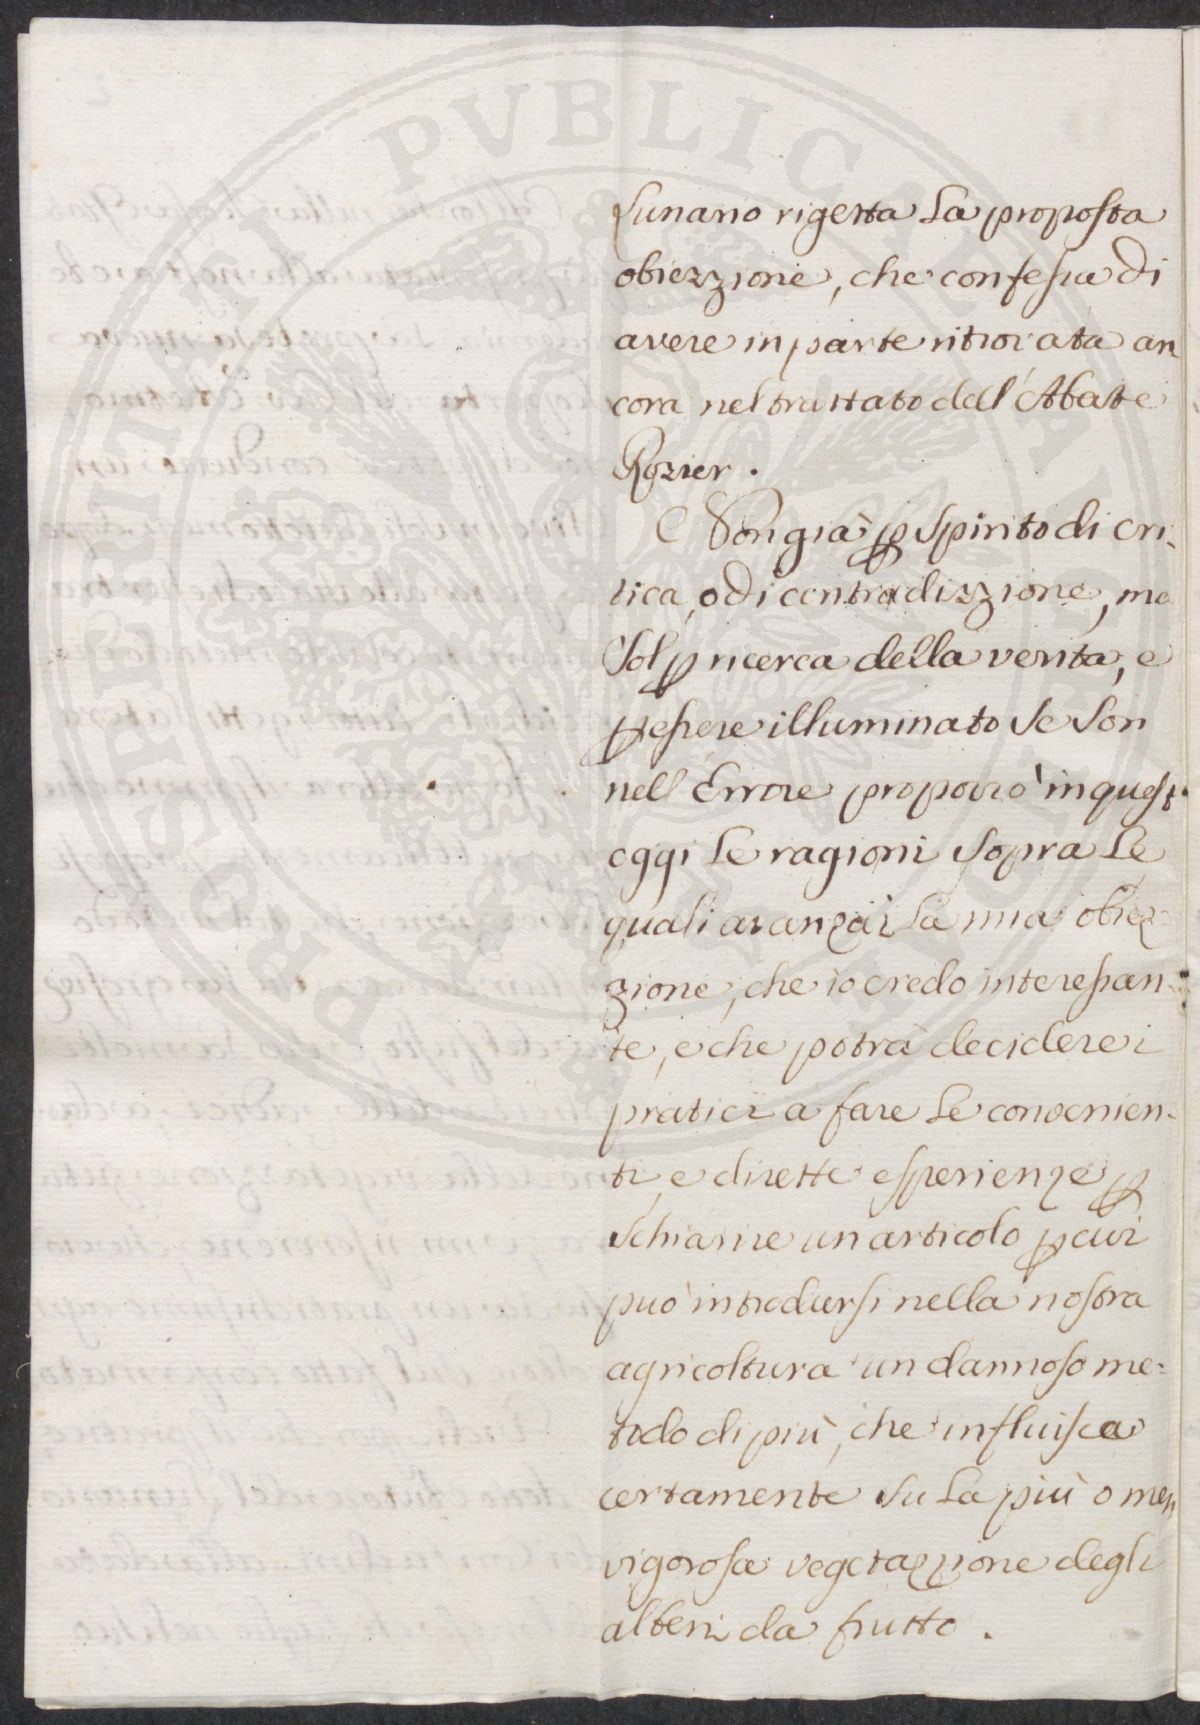 PROSPERITATI PUBLICAE AUGENDAE
Lunario rigetta La proposta
obiezzione, che confessa di
avere in parte ritrovata an
cora nel trattato dell'Abate
Rozier.
Non già p spirito di cri-
tica, o di contradizzione, ma
Sol p ricerca della verita, e
p essere illuminato se son
nell'Errore proporrò in quest'
oggi Le ragioni sopra Le
quali avanzai La mia obiez-
zione, che io credo interessan-
te, e che potrà decidere i
pratici a fare Le convenien-
ti, e dirette esperienze p
schiarire un articolo p cui
può introdursi nella nostra
agricoltura un dannoso me-
todo di più, che influisca
certamente su La più o men
vigorosa vegetazzione degli
alberi da frutto.